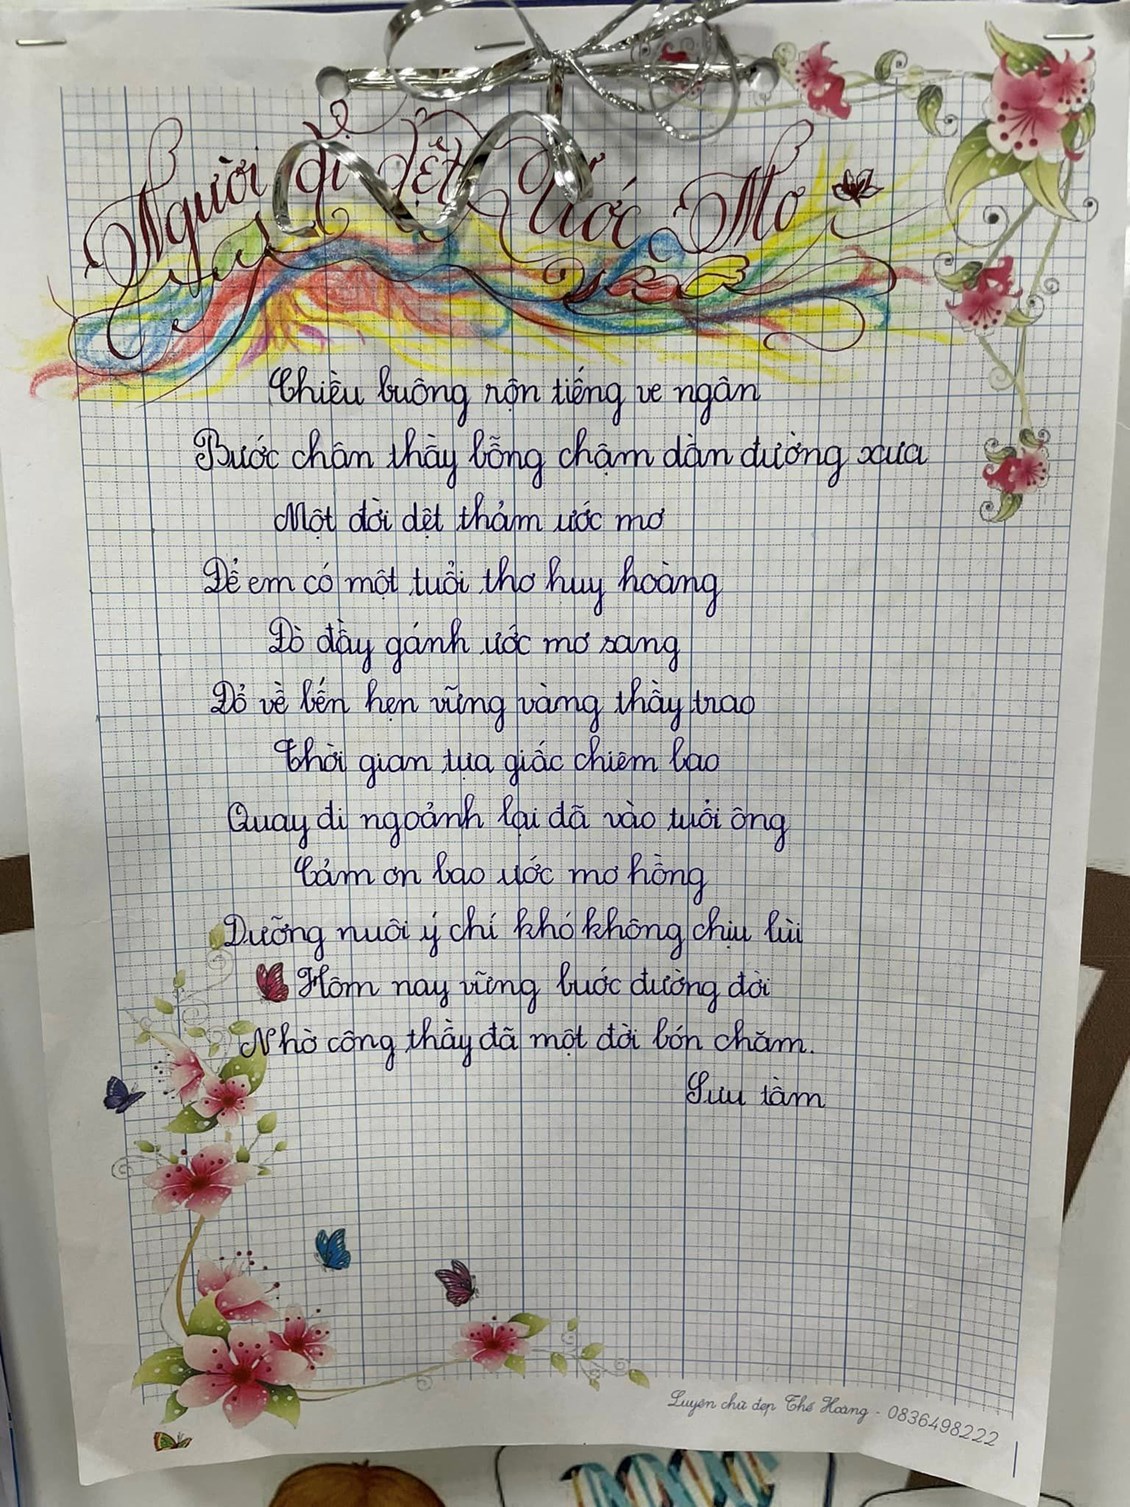 Người đi dệt Ước Mơ
Chiều buông rộn tiếng ve ngân
Bước chân thầy bỗng chậm dần đường xưa
Một đời dệt thảm ước mơ
Để em có một tuổi thơ huy hoàng
Đò đầy gánh ước mơ sang
Đỗ về bến hẹn vững vàng thầy trao
Thời gian tựa giấc chiêm bao
Quay đi ngoảnh lại đã vào tuổi ông
Cảm ơn bao ước mơ hồng
Dưỡng nuôi ý chí khó không chịu lùi
Hôm nay vững bước đường đời
Nhờ công thầy đã một đời bón chăm.
Sưu tầm
Luyện chữ đẹp Thế Hoàng - 0836498222